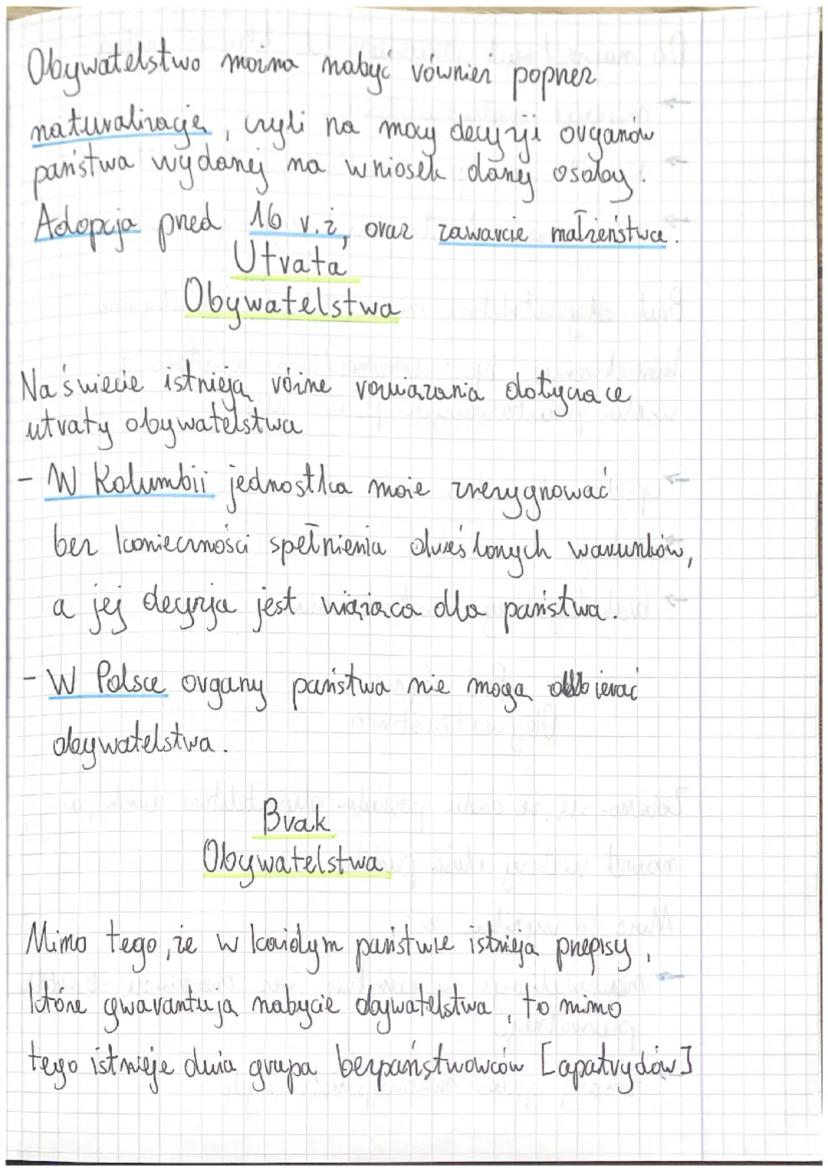 Obywatelstwo można nabyć również poprzez
naturalizację, czyli na mocy decyzji organów
państwa wydanej na wniosek danej osoby.
Adopcja przed 16 r.ż, oraz zawarcie małżeństwa.
Utrata
Obywatelstwa
Na świecie istnieją różne rozwiązania dotyczące
utraty obywatelstwa
- W Kolumbii jednostka może zrezygnować
bez konieczności spełnienia określonych warunków,
a jej decyzja jest wiążąca dla państwa.
- W Polsce organy państwa nie mogą odbierać
obywatelstwa.
Brak
Obywatelstwa
Mimo tego, że w każdym państwie istnieją przepisy,
które gwarantują nabycie obywatelstwa, to mimo
tego istnieje duża grupa bezpaństwowców [apatrydów]